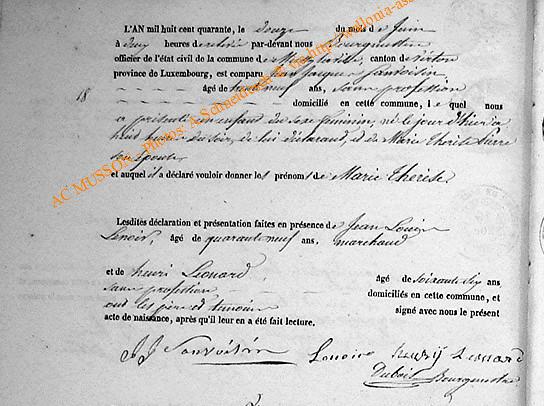 L'AN mil huit cent quarante, le douze du mois de Juin
à six heures de relevée par-devant nous Bourgmestre
officier de l'état civil de la commune de Musson, canton de Virton
province de Luxembourg, est comparu Jean Jacques Sanvoisin
18 âgé de trente neuf ans, sans profession
domicilié en cette commune, le quel nous
a présenté un enfant du sexe féminin, né le jour d'hier à
huit heures du soir, de lui déclarant, et de Marie Thérèse Pierre
son épouse
et auquel il a déclaré vouloir donner le prénom de Marie Thérèse
Lesdites déclaration et présentation faites en présence de Jean Louis
Lenoir, âgé de quarante neuf ans, marchand
et de henri Léonard âgé de soixante six ans
sans profession domiciliés en cette commune, et
ont les père et témoins signé avec nous le présent
acte de naissance, après qu'il leur en a été fait lecture.
JJ Sanvoisin Lenoir henry Leonard
Dubois Bourgmestre
AC MUSSON - Photos: A. Schneidesch